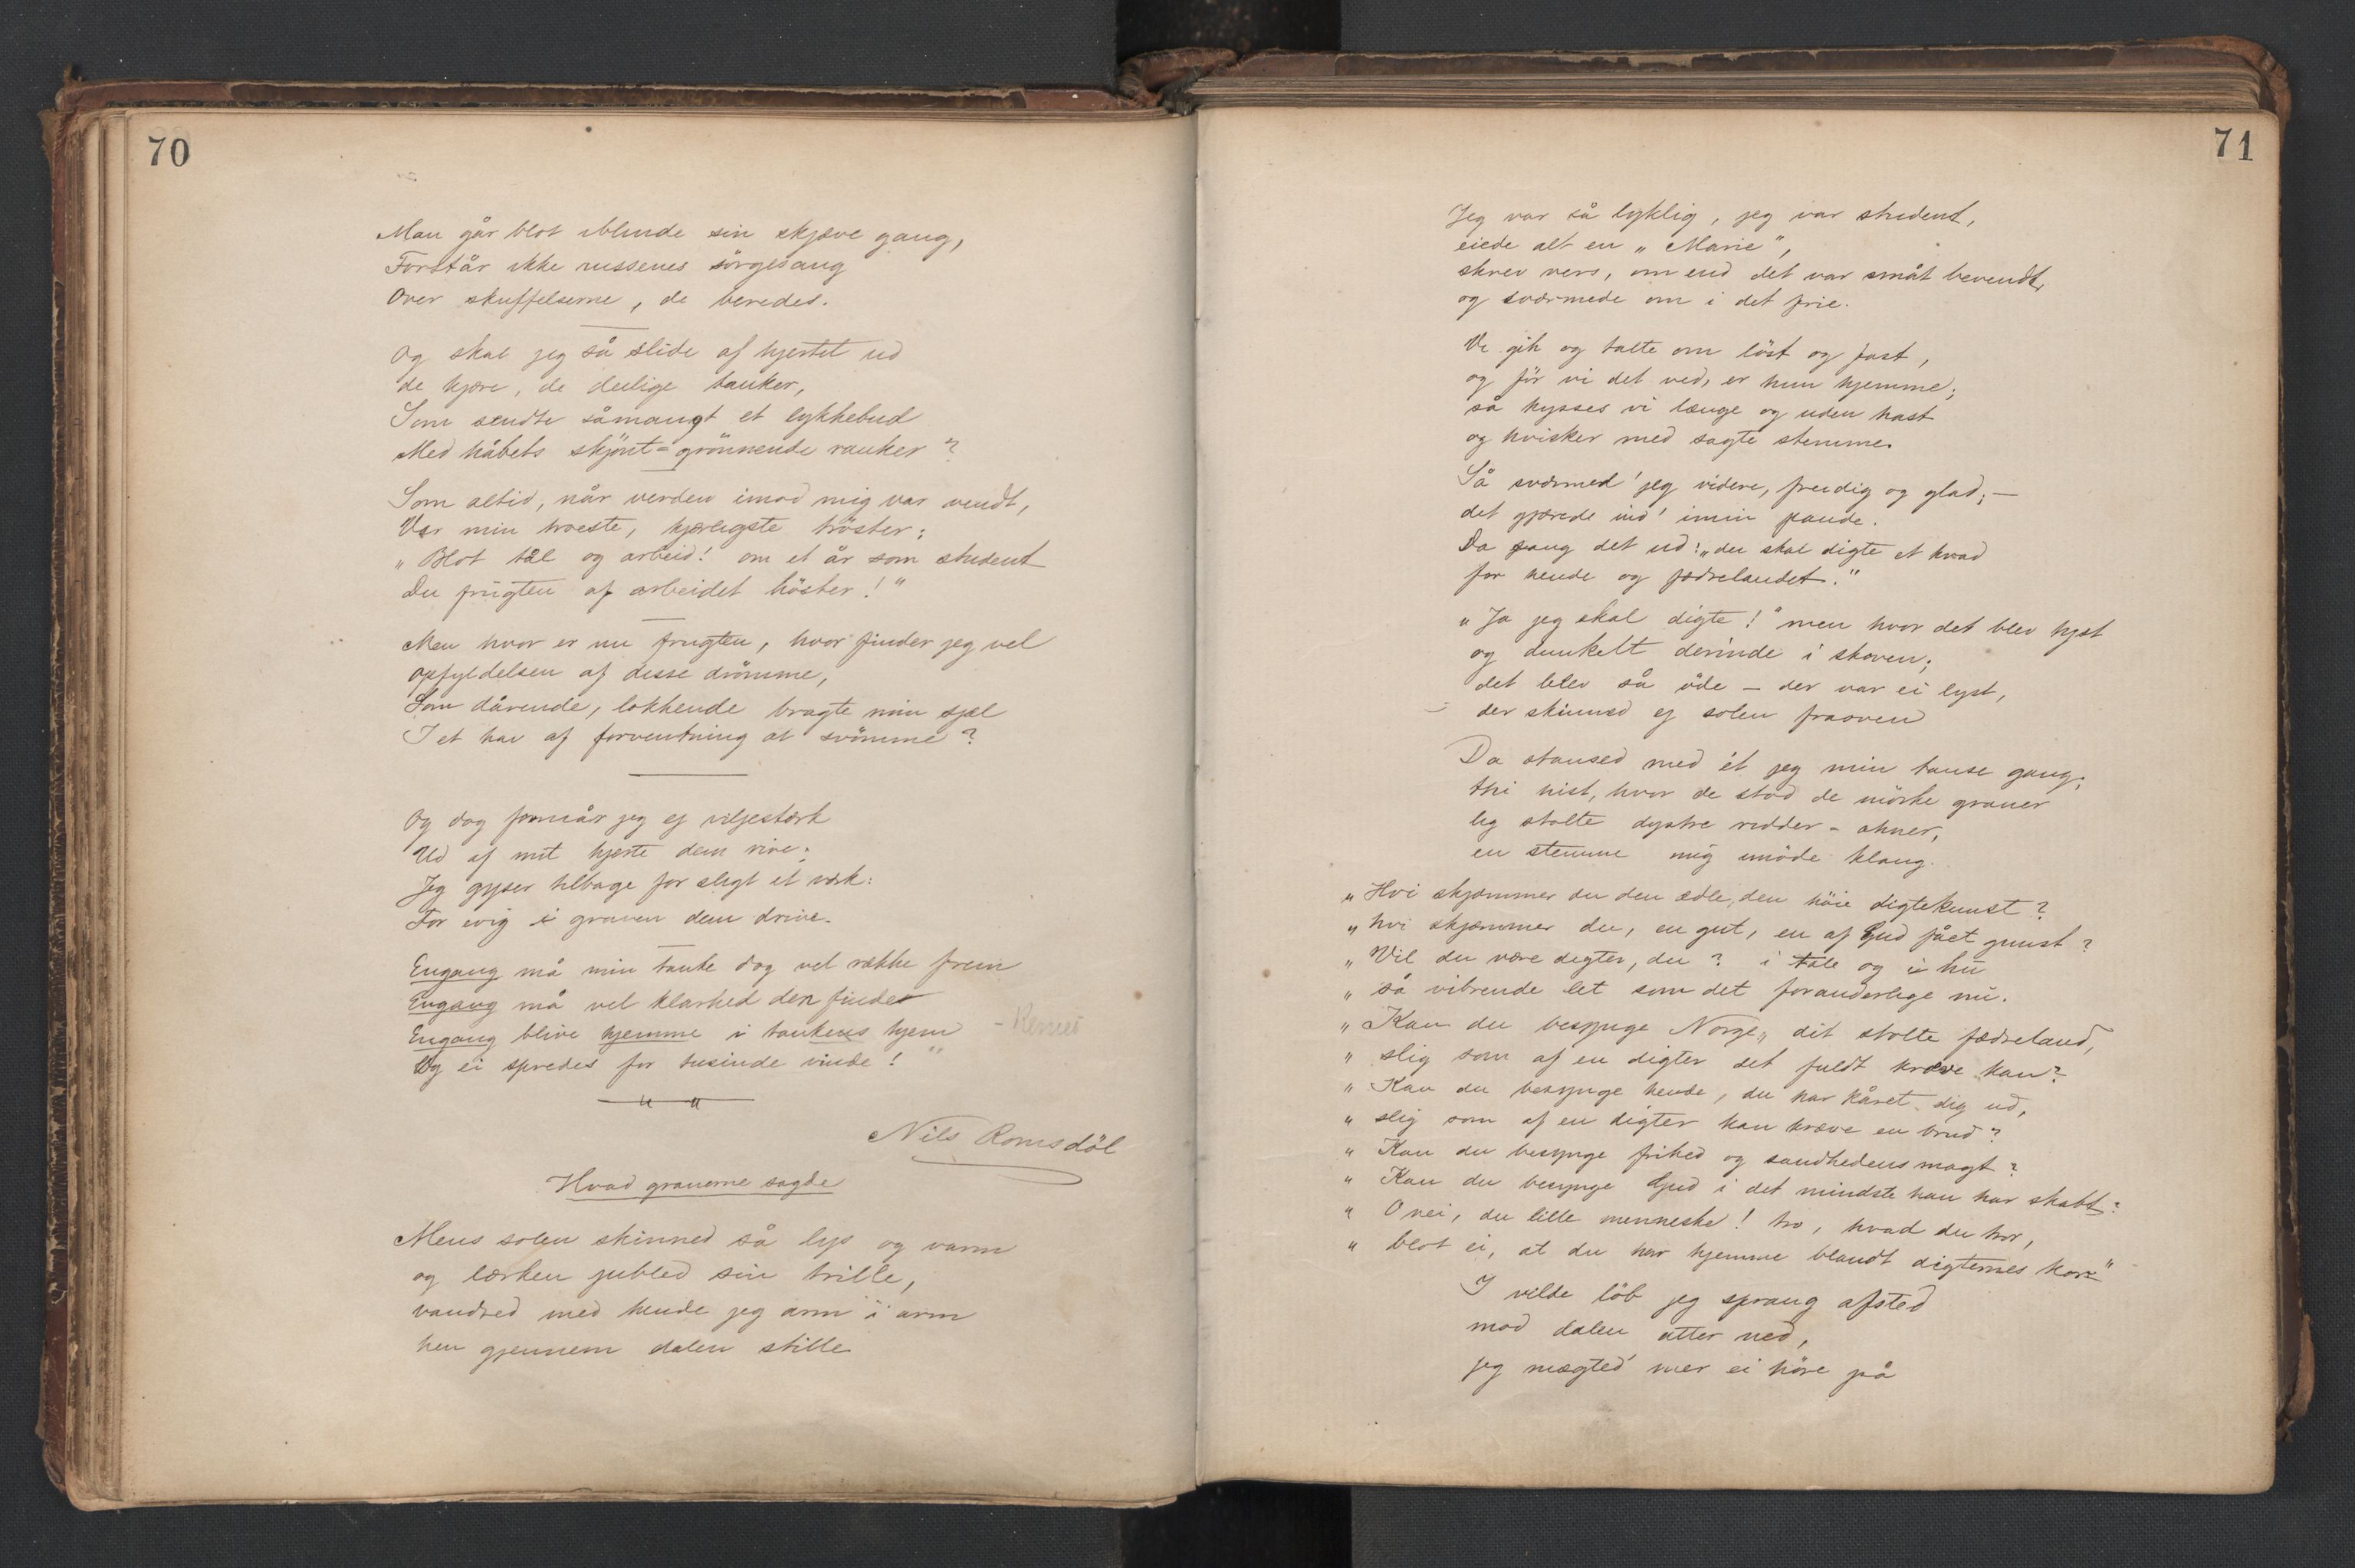 70
Man går blot iblinde sin skjæve gang,
Forstår ikke russenes sörgesang
Over skuffelserne, de beredes.
Og skal jeg så slide af hjertet ud
de kjære, de deilige tanker,
Som sendte såmangt et lykkebud
Med håbets skjönt-grönnende ranker?
Som altid, når verden imod mig var vendt,
Var min troeste, kjærligste tröster:
„Blot tål og arbeid! om et år som student
Du frugten af arbeidet höster!"
Men hvor er nu frugten, hvor finder jeg vel
Opfyldelsen af disse drömme,
Som dårende, lokkende bragte min sjæl
I et hav af forventning at svömme?
Og dog formår jeg ej viljestærk
Ud af mit hjerte dem rive;
Jeg gyser tilbage for sligt et værk:
For evig i graven dem drive.
Engang må min tanke dog vel række frem
Engang må vel klarhed den finde
Engang blive hjemme i tankens hjem
Og ei spredes for tusinde vinde!"
Nils Romsdöl
Hvad granerne sagde
Mens solen skinned så lys og varm
og lærken jubled sin trille,
vandred med hende jeg arm i arm
hen gjennem dalen stille
71
Jeg var så lyklig, jeg var student,
eiede alt en „Marie",
skrev vers, om end det var småt bevendt,
og sværmede om i det frie.
Vi gik og talte om löst og fast,
og för vi det ved, er hun hjemme;
så kysses vi længe og uden hast
og hvisker med sagte stemme.
Så sværmed' jeg videre, freidig og glad; —
det gjærede ind' i min pande.
Da sang det ud: „du skal digte et kvad
for hende og fædrelandet."
„Ja jeg skal digte!" men hvor det blev tyst
og dunkelt derinde i skoven;
det blev så öde — der var ei lyst,
der skinned ej solen fraoven
Da stansed med ét jeg min tause gang;
thi hist, hvor de stod de mörke graner
lig stolte dystre ridder-ahner,
en stemme mig imöde klang.
„Hvi skjæmmer du den ædle, den höie digtekunst?
„hvi skjæmmer du, en gut, en af Gud fået gunst?
„Vil du være digter, du? i tale og i hu
„så vibrende let som det foranderlige nu.
„Kan du besynge Norge, dit stolte fædreland,
„slig som af en digter det fuldt kræve kan?
„Kan du besynge hende, du har kåret dig ud,
„slig som af en digter kan kræve en brud?
„Kan du besynge frihed og sandhedens magt?
„Kan du besynge Gud i det mindste han har skabt?
„O nei, du lille menneske! tro, hvad du tror,
„blot ei, at du har hjemme blandt digternes kor"
I vilde löb jeg sprang afsted
mod dalen atter ned,
jeg mægted' mer ei höre på